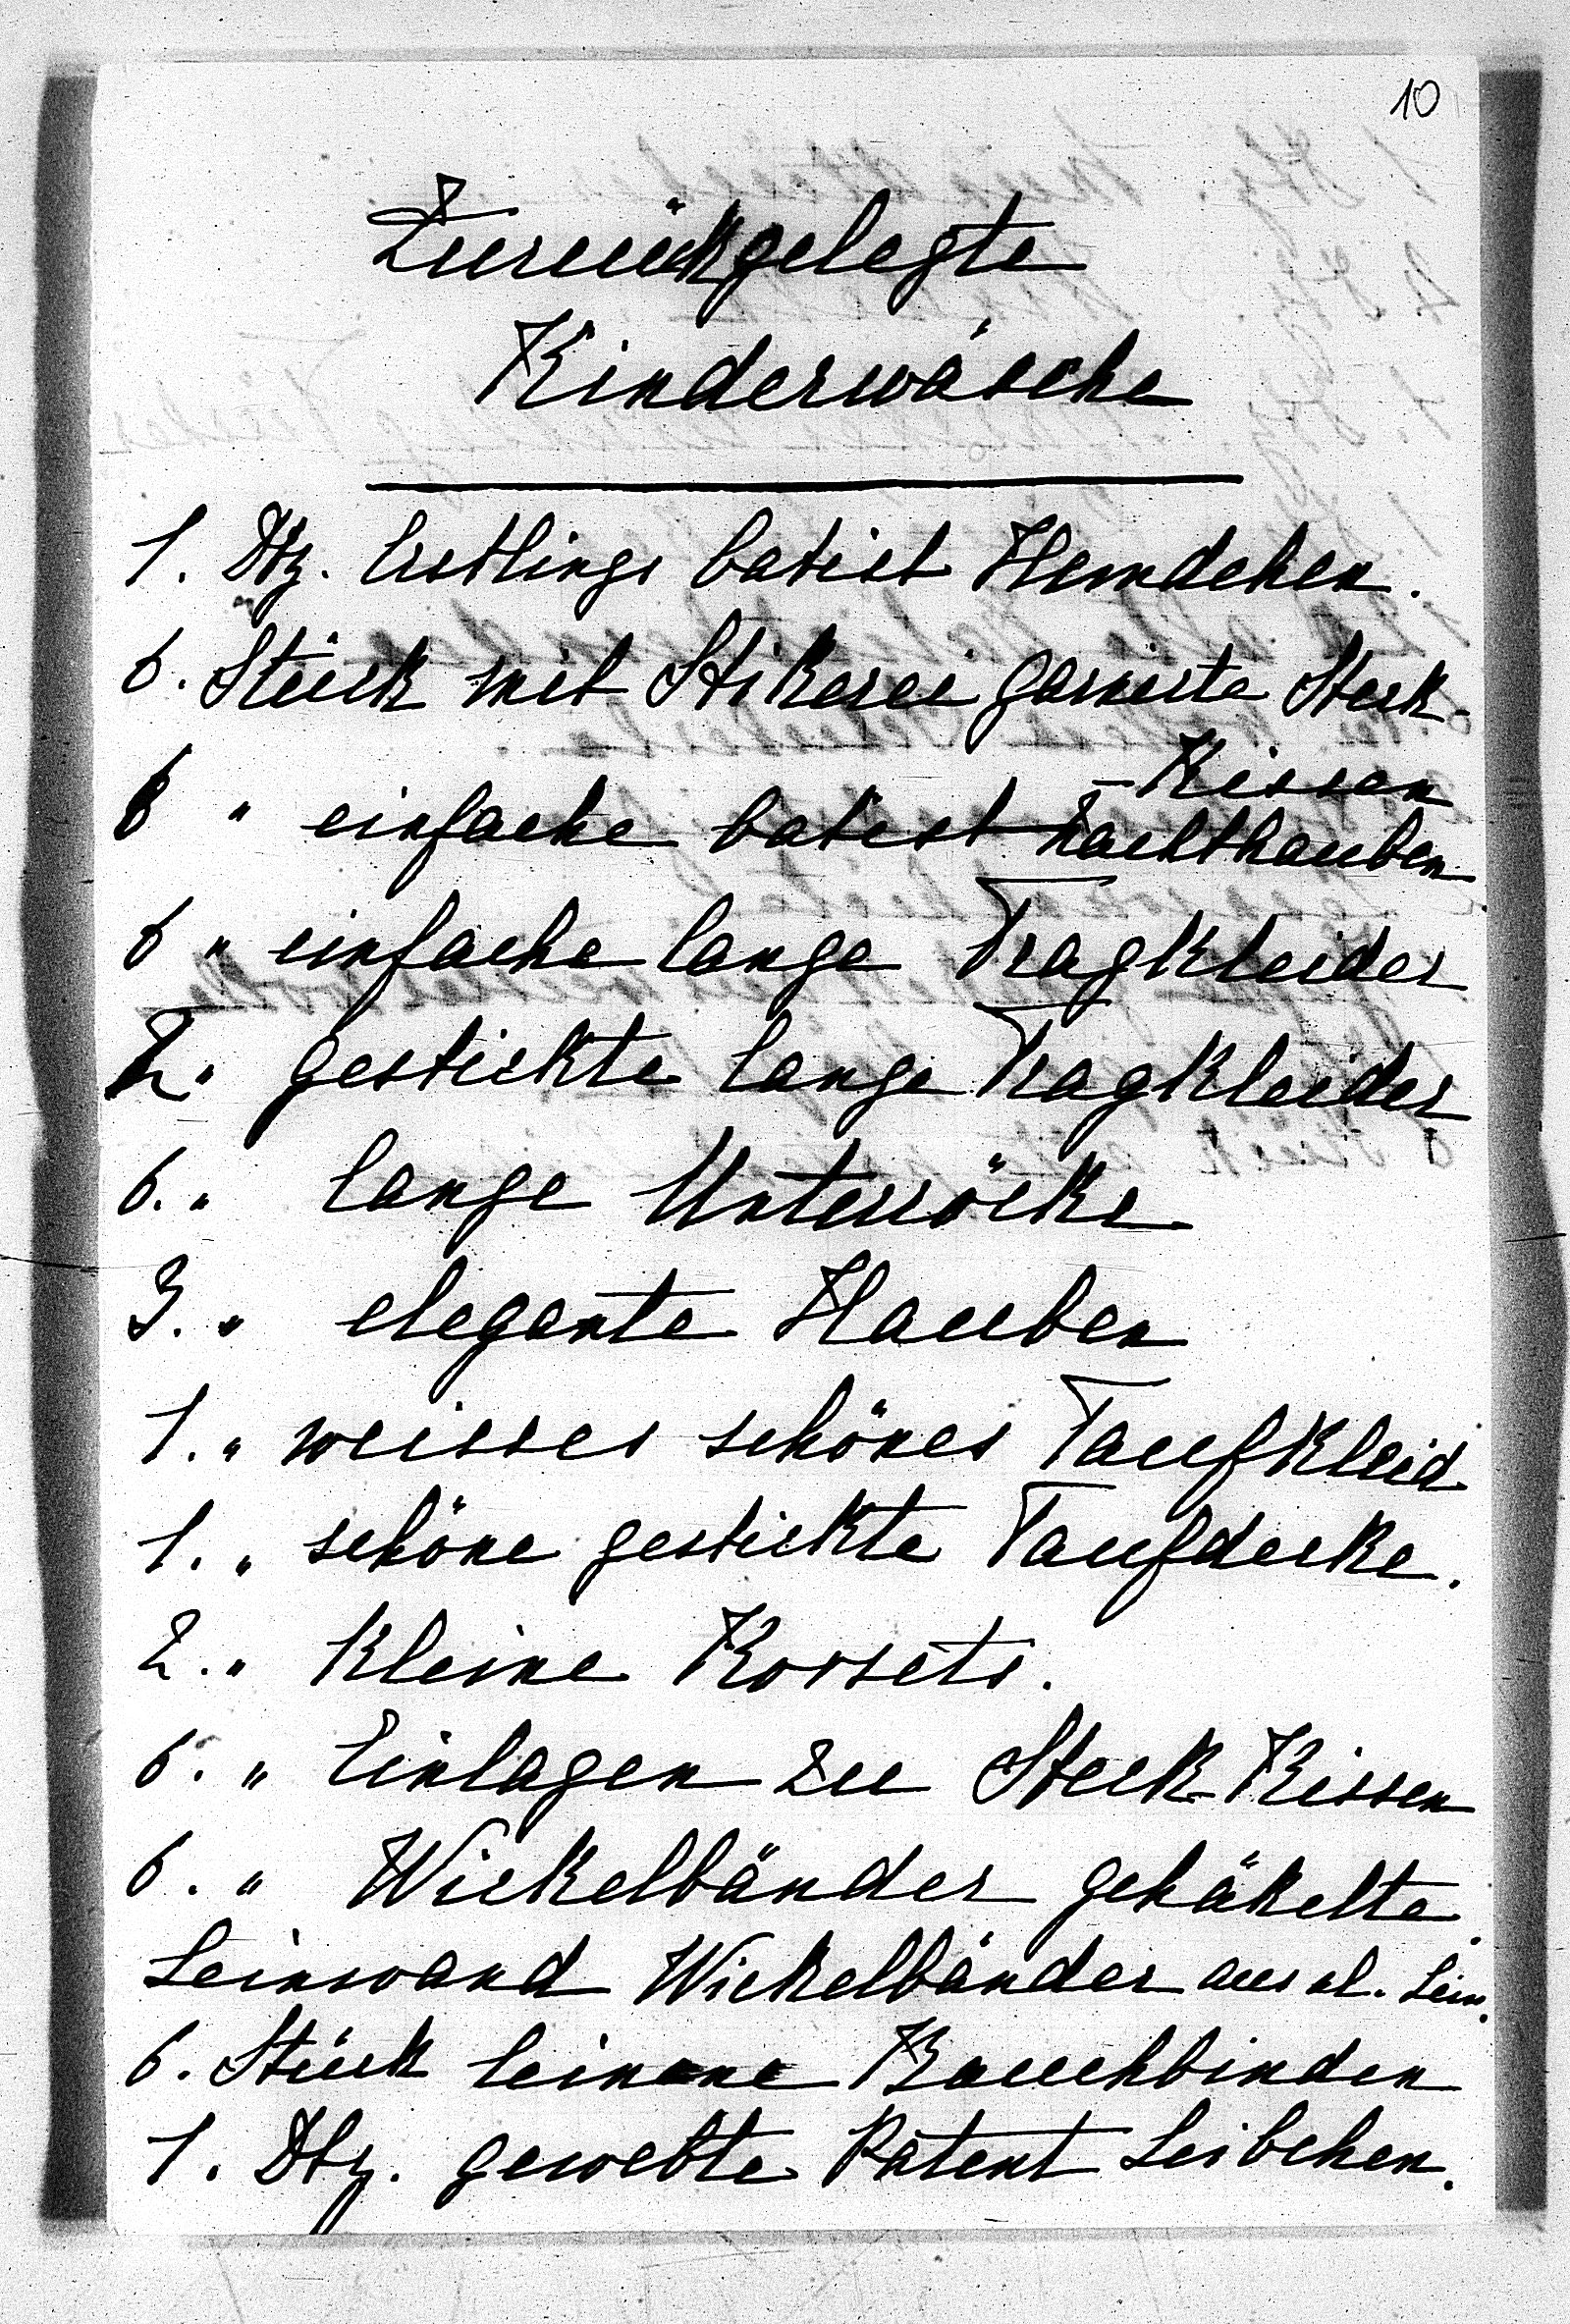 10
Zurückgelegte
Kinderwäsche
1. Dtz. Erstlings batist Hemdchen.
6. Stück mit Stikerei garnirte Steck-
-Kissen
6 " einfache batist Nachthauben
6 " einfache lange Tragkleider
2. " gestickte lange Tragkleider
6. " lange Unterröcke
3. " elegante Hauben
1. " weisses schönes Taufkleid
1. " schöne gestickte Taufdecke.
2. " kleine Korsets.
6. " Einlagen zu Steck-Kissen
6. " Wickelbänder gehäkelte
Leinwand Wickelbänder aus al. Lein.
6. Stück leinene Bauchbinden
1. Dtz. gewebte Patent Leibchen.